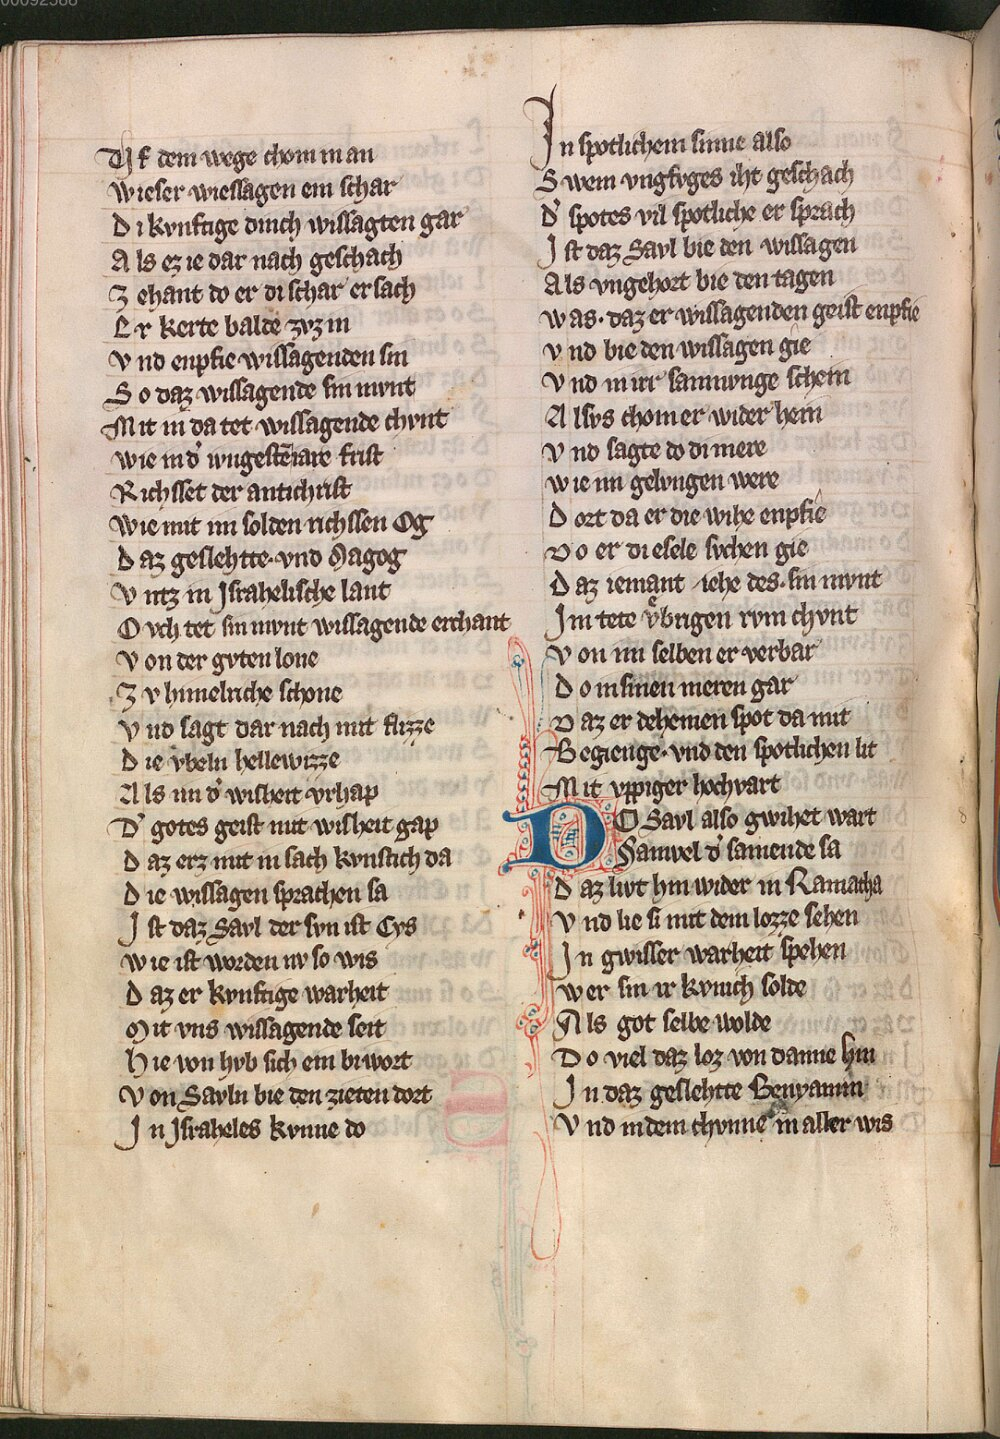 00092588
Vf dem wege chom in an
Wieser wiessagen ein schar
Di kvnftige dinch wissagten gar
Als ez ie dar nach geschach
Zehant do er di schar ersach
Er kerte balde zvz in
Vnd enpfie wissagenden sin
So daz wissagende sin mvnt
Mit in da tet wissagende chvnt
Wie in d'
Richsset der antichrist
Wie mit im solden richssen Og
Daz geslehtte. vnd Magog
Vntz in Jsrahelische lant
Ovch tet sin mvnt wissagende erchant
Von der gvten lone
Zv himelriche schone
Vnd sagt dar nach mit flizze
Die vbeln hellewizze
Als im d' wisheit vrhap
D' gotes geist mit wisheit gap
Daz erz mit in sach kvnstich da
Die wissagen sprachen sa
Jst daz Savl der svn ist Cys
Wie ist worden nv so wis
Daz er kvnftige warheit
Mit vns wissagende seit
Hie von hvb sich ein biwort
Von Savln bie den zieten dort
Jn Jsraheles kvnne do
Jn spotlichem sinne also
Swem vngfvges iht geschach
D' spotes vil spotliche er sprach
Jst daz Savl bie den wissagen
Als vngehort bie den tagen
Was. daz er wissagenden geist enpfie
Vnd bie den wissagen gie
Vnd in irr samnvnge schein
Alsvs chom er wider hein
Vnd sagte do di mere
Wie im gelvngen were
Dort da er die wihe enpfie
Do er di esele svchen gie
Daz iemant iehe des. sin mvnt
Jm tete vbrigen rvm chvnt
Von im selben er verbar
Do in sinen meren gar
Daz er deheinen spot da mit
Begienge. vnd den spotlichen sit
Mit vppiger hochvart
DO Savl also gwihet wart
Samvel d' sannende sa
Daz livt hin wider in Ramatha
Vnd lie si mit dem lozze sehen
Jn gwisser warheit spehen
Wer sin ir kvnich solde
Als got selbe wolde
Do viel daz loz von danne hin
Jn daz geslehtte Benyamin
Vnd in dem chvnne in aller wis